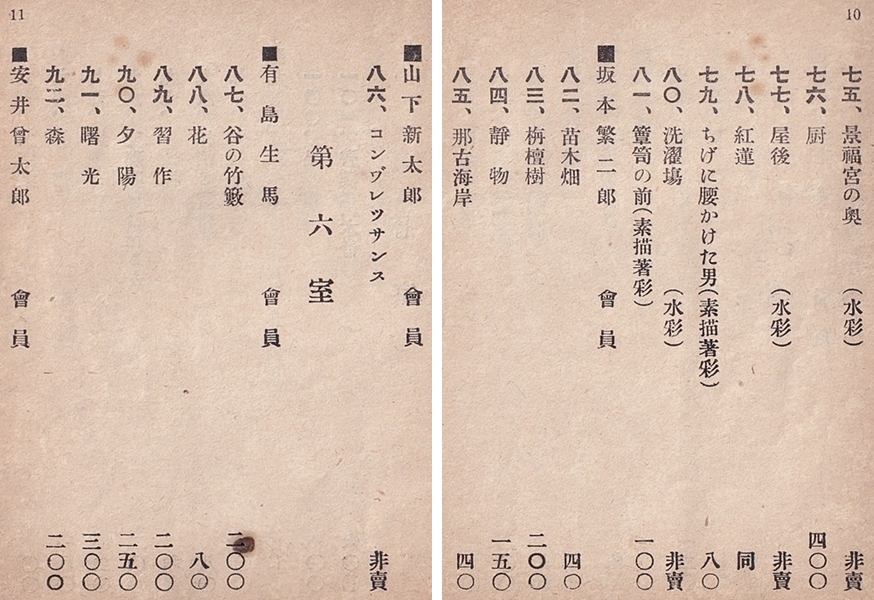 10
七五、景福宮の奧 (水彩) 非賣
七六、厨 四〇〇
七七、屋後 (水彩) 非賣
七八、紅蓮 同
七九、ちげに腰かけた男(素描著彩) 八〇
八〇、洗濯塲 (水彩) 非賣
八一、簟笥の前(素描著彩) 一〇〇
■坂本繁二郎 會員
八二、苗木畑 四〇
八三、栴檀樹 二〇〇
八四、靜物 一五〇
八五、那古海岸 四〇
11
■山下新太郎 會員
八六、コンヴレツサンス 非賣
第六室
■有島生馬 會員
八七、谷の竹籔 二〇〇
八八、花 八〇
八九、習作 二〇〇
九〇、夕陽 二五〇
九一、曙光 三〇〇
九二、森 二〇〇
■安井曾太郎 會員